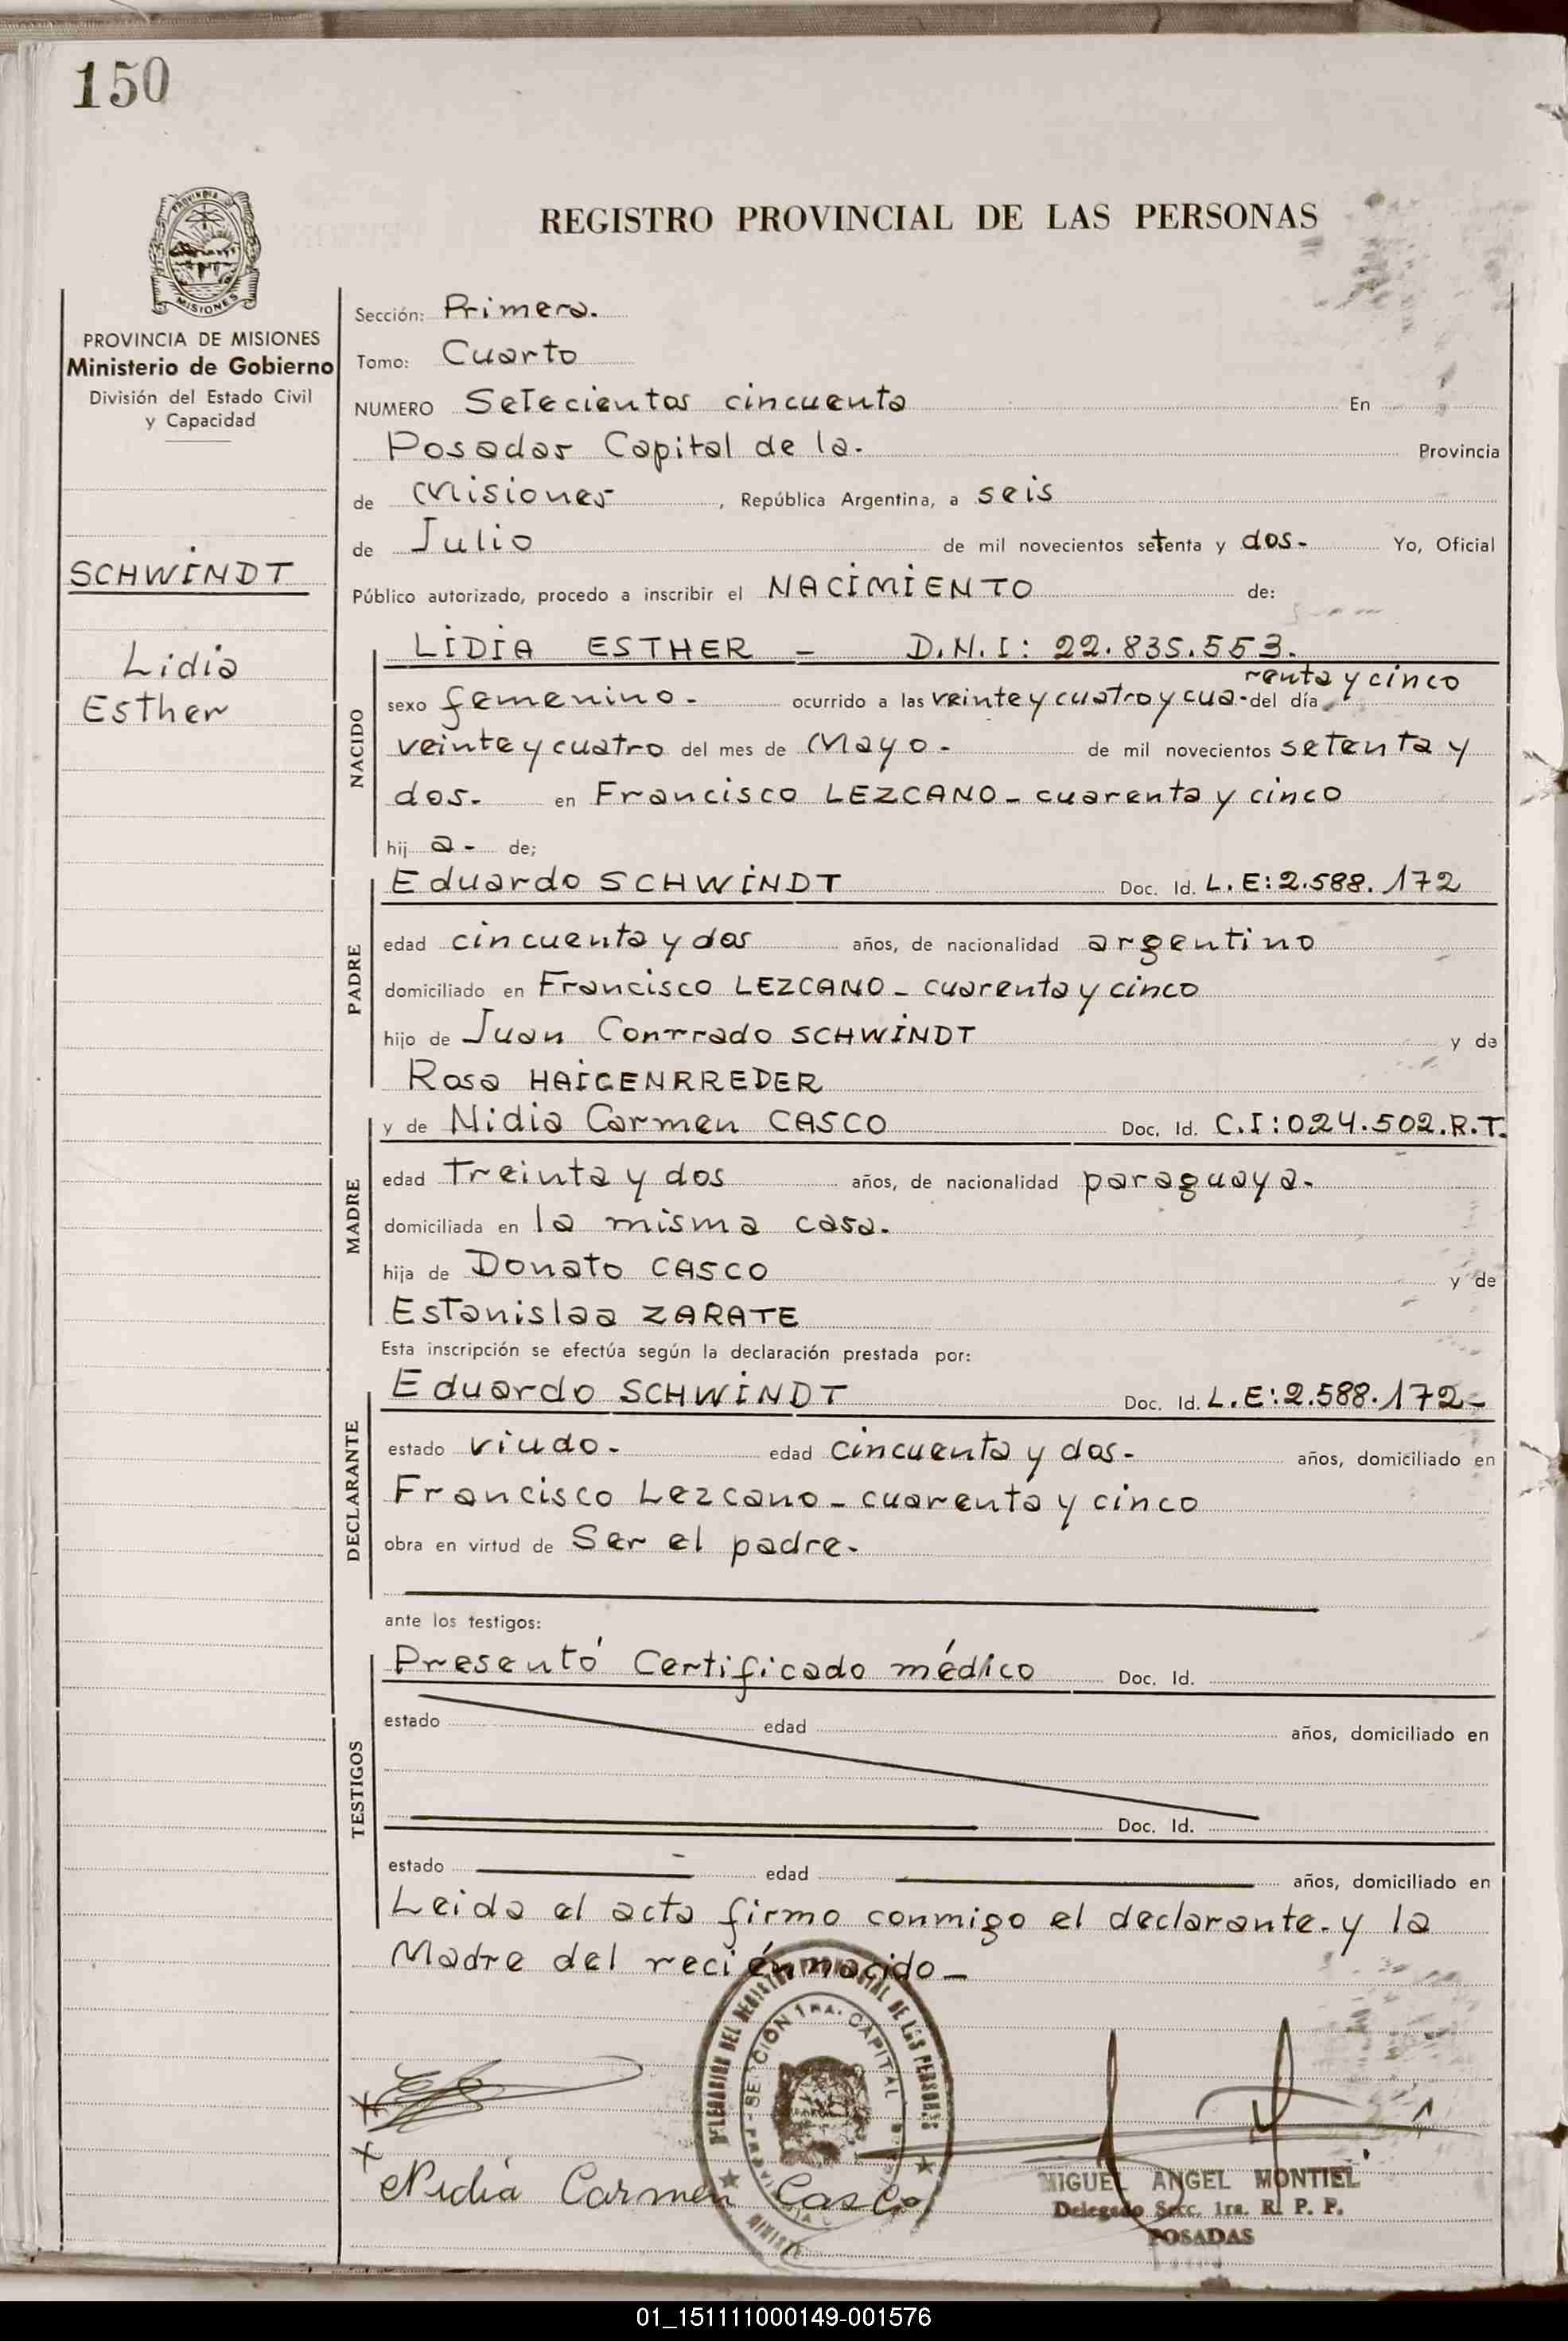 150
PROVINCIA
MISIONES
REGISTRO PROVINCIAL DE LAS PERSONAS
PROVINCIA DE MISIONES
Ministerio de Gobierno
División del Estado Civil
y Capacidad
SCHWINDT
Lidia
Esther
Sección: Primera.
Tomo: Cuarto
NUMERO Setecientos cincuenta En
Posadas Capital de la. Provincia
de Misiones, República Argentina, a seis
de Julio de mil novecientos setenta y dos- Yo, Oficial
Público autorizado, procedo a inscribir el NACIMIENTO de:
NACIDO
LIDIA ESTHER - D.N.I: 22.835.553.
renta y cinco
sexo femenino- ocurrido a las veinte y cuatro y cua- del día
veinte y cuatro del mes de Mayo- de mil novecientos setenta y
dos- en Francisco LEZCANO - cuarenta y cinco
hij a- de;
PADRE
Eduardo SCHWINDT Doc. Id. L.E: 2.588.172
edad cincuenta y dos años, de nacionalidad argentino
domiciliado en Francisco LEZCANO - cuarenta y cinco
hijo de Juan Conrrado SCHWINDT y de
Rosa HAIGENRREDER
MADRE
y de Nidia Carmen CASCO Doc. Id. C.I: 024.502.R.T.
edad treinta y dos años, de nacionalidad paraguaya-
domiciliada en la misma casa.
hija de Donato CASCO y de
Estanislaa ZARATE
Esta inscripción se efectúa según la declaración prestada por:
DECLARANTE
Eduardo SCHWINDT Doc. Id. L.E: 2.588.172-
estado viudo- edad cincuenta y dos- años, domiciliado en
Francisco Lezcano - cuarenta y cinco
obra en virtud de Ser el padre-
ante los testigos:
TESTIGOS
Presentó Certificado médico Doc. Id.
estado edad años, domiciliado en
Doc. Id.
estado edad años, domiciliado en
Leida el acta firmo conmigo el declarante- y la
Madre del recién nacido-
DELEGACION DEL REGISTRO PROVINCIAL DE LAS PERSONAS
SECCION 1RA. CAPITAL
Nidia Carmen Casco
MIGUEL ANGEL MONTIEL
Delegado Secc. 1ra. R. P. P.
POSADAS
01_151111000149-001576